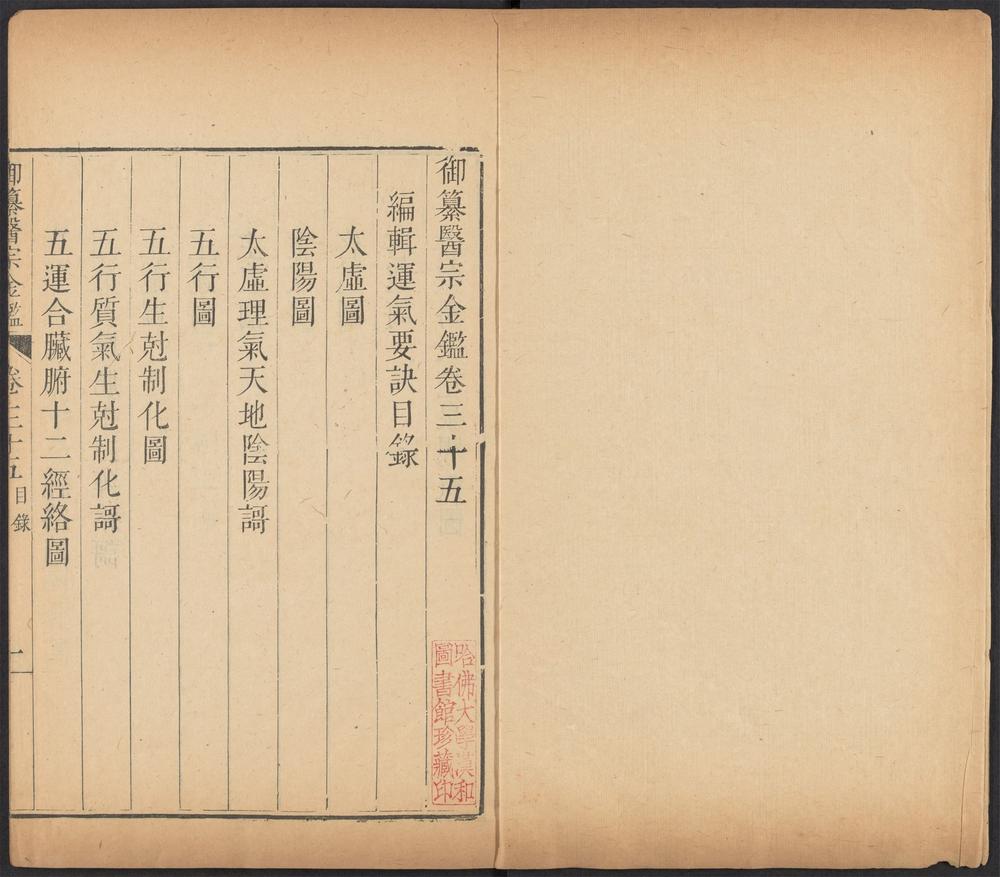 御纂醫宗金鑑卷三十五
編輯運氣要訣目錄
太虛圖
陰陽圖
太虛理氣天地陰陽謌
五行圖
五行生尅制化圖
五行質氣生尅制化謌
五運合臟腑十二經絡圖
御纂醫宗金鑑 卷三十五目錄 一
哈佛大學漢和
圖書館珍藏印